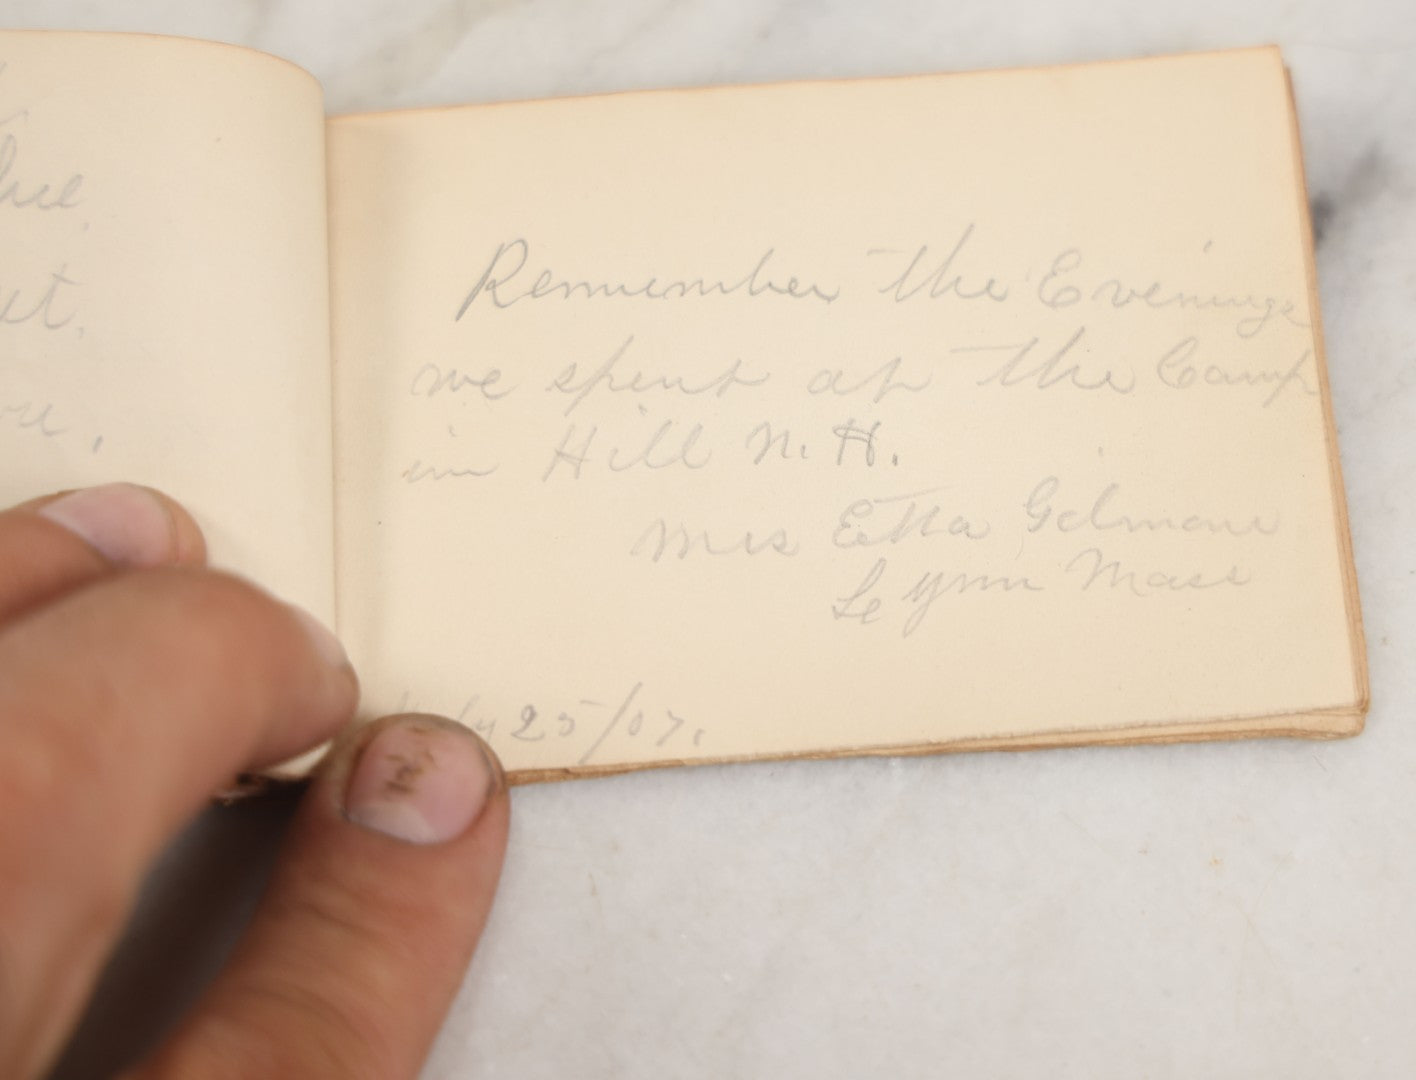 Remember the Evenings
we spent at the Camp
in Hill N. H.
Mrs Etta Gilmore
Lynn Mass
25/07.